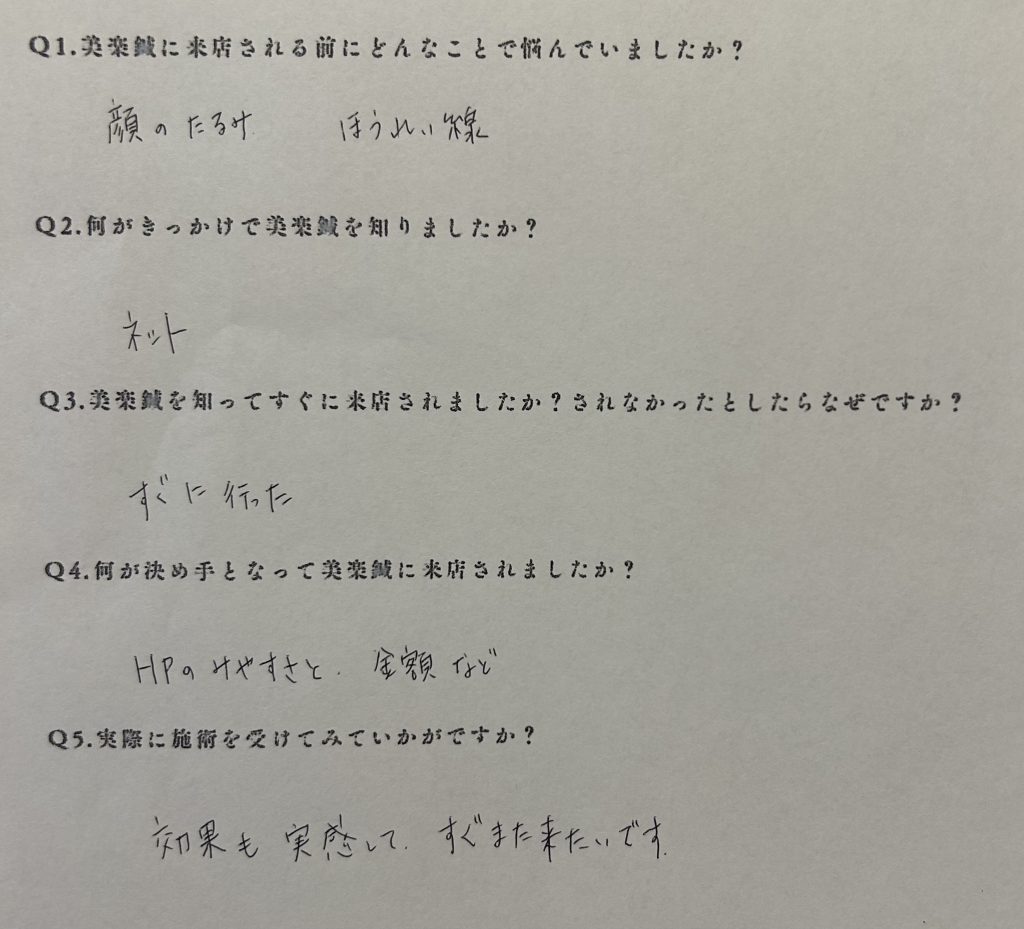 Q1.美楽鍼に来店される前にどんなことで悩んでいましたか?
顔のたるみ ほうれい線
Q2.何がきっかけで美楽鍼を知りましたか?
ネット
Q3.美楽鍼を知ってすぐに来店されましたか?されなかったとしたらなぜですか?
すぐに行った
Q4.何が決め手となって美楽鍼に来店されましたか?
HPのみやすさと、金額など
Q5.実際に施術を受けてみていかがですか?
効果も実感して、すぐまた来たいです。